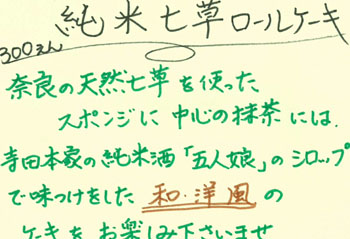 純米七草ロールケーキ
300えん
奈良の天然七草を使った
スポンジに中心の抹茶には、
寺田本家の純米酒「五人娘」のシロップ
で味つけをした 和・洋風の
ケーキをお楽しみ下さいませ